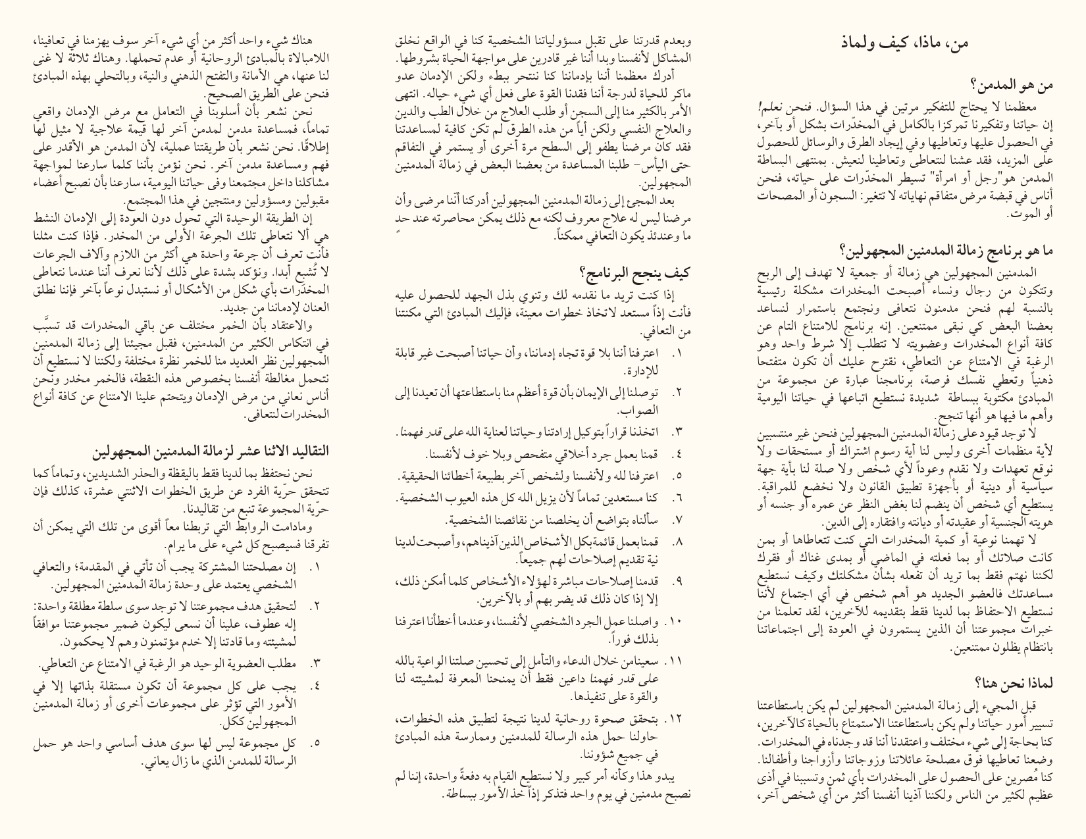 من، ماذا، كيف ولماذ
من هو المدمن؟
معظمنا لا يحتاج للتفكير مرتين في هذا السؤال. فنحن نعلم!
إن حياتنا وتفكيرنا تمركزا بالكامل في المخدّرات بشكل أو بآخر،
في الحصول عليها وتعاطيها وفي إيجاد الطرق والوسائل للحصول
على المزيد، فقد عشنا لنتعاطى وتعاطينا لنعيش. بمنتهى البساطة
المدمن هو"رجل أو امرأة" تسيطر المخدّرات على حياته، فنحن
أناس في قبضة مرض متفاقم نهاياته لا تتغير: السجون أو المصحات
أو الموت.
ما هو برنامج زمالة المدمنين المجهولين؟
المدمنين المجهولين هي زمالة أو جمعية لا تهدف إلى الربح
وتتكون من رجال ونساء أصبحت المخدرات مشكلة رئيسية
بالنسبة لهم فنحن مدمنون نتعافى ونجتمع باستمرار لنساعد
بعضنا البعض كي نبقى ممتنعين. إنه برنامج للامتناع التام عن
كافة أنواع المخدرات وعضويته لا تتطلب إلا شرط واحد وهو
الرغبة في الامتناع عن التعاطي، نقترح عليك أن تكون متفتحا
ذهنياً وتعطي نفسك فرصة، برنامجنا عبارة عن مجموعة من
المبادئ مكتوبة ببساطة شديدة نستطيع اتباعها في حياتنا اليومية
وأهم ما فيها هو أنها تنجح.
لا توجد قيود على زمالة المدمنين المجهولين فنحن غير منتسبين
لأية منظمات أخرى وليس لنا أية رسوم اشتراك أو مستحقات ولا
نوقع تعهدات ولا نقدم وعوداً لأي شخص ولا صلة لنا بأية جهة
سياسية أو دينية أو بأجهزة تطبيق القانون ولا نخضع للمراقبة.
يستطيع أي شخص أن ينضم لنا بغض النظر عن عمره أو جنسه أو
هويته الجنسية أو عقيدته أو ديانته وافتقاره إلى الدين.
لا تهمنا نوعية أو كمية المخدرات التي كنت تتعاطاها أو بمن
كانت صلاتك أو بما فعلته في الماضي أو بمدى غناك أو فقرك
لكننا نهتم فقط بما تريد أن تفعله بشأن مشكلتك وكيف نستطيع
مساعدتك فالعضو الجديد هو أهم شخص في أي اجتماع لأننا
نستطيع الاحتفاظ بما لدينا فقط بتقديمه للآخرين، لقد تعلمنا من
خبرات مجموعتنا أن الذين يستمرون في العودة إلى اجتماعاتنا
بانتظام يظلون ممتنعين.
لماذا نحن هنا؟
قبل المجيء إلى زمالة المدمنين المجهولين لم يكن باستطاعتنا
تسيير أمور حياتنا ولم يكن باستطاعتنا الاستمتاع بالحياة كالآخرين،
كنا بحاجة إلى شيء مختلف واعتقدنا أننا قد وجدناه في المخدرات.
وضعنا تعاطيها فوق مصلحة عائلاتنا وزوجاتنا وأزواجنا وأطفالنا.
كنا مُصرين على الحصول على المخدرات بأي ثمن وتسببنا في أذى
عظيم لكثير من الناس ولكننا آذينا أنفسنا أكثر من أي شخص آخر،
وبعدم قدرتنا على تقبل مسؤولياتنا الشخصية كنا في الواقع نخلق
المشاكل لأنفسنا وبدا أننا غير قادرين على مواجهة الحياة بشروطها.
أدرك معظمنا أننا بإدماننا كنا ننتحر ببطء ولكن الإدمان عدو
ماكر للحياة لدرجة أننا فقدنا القوة على فعل أي شيء حياله. انتهى
الأمر بالكثير منا إلى السجن أو طلب العلاج من خلال الطب والدين
والعلاج النفسي ولكن أياً من هذه الطرق لم تكن كافية لمساعدتنا
فقد كان مرضنا يطفو إلى السطح مرة أخرى أو يستمر في التفاقم
حتى اليأس– طلبنا المساعدة من بعضنا البعض في زمالة المدمنين
المجهولين.
بعد المجئ إلى زمالة المدمنين المجهولين أدركنا أنّنا مرضى وأن
مرضنا ليس له علاج معروف لكنه مع ذلك يمكن محاصرته عند حدٍ
ما وعندئذ يكون التعافي ممكناً.
كيف ينجح البرنامج؟
إذا كنت تريد ما نقدمه لك وتنوي بذل الجهد للحصول عليه
فأنت إذاً مستعد لاتخاذ خطوات معينة، فإليك المبادئ التي مكنتنا
من التعافي.
١. اعترفنا أننا بلا قوة تجاه إدماننا، وأن حياتنا أصبحت غير قابلة
للإدارة.
٢. توصلنا إلى الإيمان بأن قوة أعظم منا باستطاعتها أن تعيدنا إلى
الصواب.
٣. اتخذنا قراراً بتوكيل إرادتنا وحياتنا لعناية الله على قدر فهمنا.
٤. قمنا بعمل جرد أخلاقي متفحص وبلا خوف لأنفسنا.
٥. اعترفنا لله ولأنفسنا ولشخص آخر بطبيعة أخطائنا الحقيقية.
٦. كنا مستعدين تماماً لأن يزيل الله كل هذه العيوب الشخصية.
٧. سألناه بتواضع أن يخلصنا من نقائصنا الشخصية.
٨. قمنا بعمل قائمة بكل الأشخاص الذين آذيناهم، وأصبحت لدينا
نية تقديم إصلاحات لهم جميعاً.
٩. قدمنا إصلاحات مباشرة لهؤلاء الأشخاص كلما أمكن ذلك،
إلا إذا كان ذلك قد يضر بهم أو بالآخرين.
١٠. واصلنا عمل الجرد الشخصي لأنفسنا، وعندما أخطأنا اعترفنا
بذلك فوراً.
١١. سعينا من خلال الدعاء والتأمل إلى تحسين صلتنا الواعية بالله
على قدر فهمنا داعين فقط أن يمنحنا المعرفة لمشيئته لنا
والقوة على تنفيذها.
١٢. بتحقق صحوة روحانية لدينا نتيجة لتطبيق هذه الخطوات،
حاولنا حمل هذه الرسالة للمدمنين وممارسة هذه المبادئ
في جميع شؤوننا.
يبدو هذا وكأنه أمر كبير ولا نستطيع القيام به دفعةً واحدة، إننا لم
نصبح مدمنين في يوم واحد فتذكر إذاً خذ الأمور ببساطة.
هناك شيء واحد أكثر من أي شيء آخر سوف يهزمنا في تعافينا،
اللامبالاة بالمبادئ الروحانية أو عدم تحملها. وهناك ثلاثة لا غنى
لنا عنها، هي الأمانة والتفتح الذهني والنية، وبالتحلي بهذه المبادئ
فنحن على الطريق الصحيح.
نحن نشعر بأن أسلوبنا في التعامل مع مرض الإدمان واقعي
تماماً، فمساعدة مدمن لمدمن آخر لها قيمة علاجية لا مثيل لها
إطلاقًا. نحن نشعر بأن طريقتنا عملية، لأن المدمن هو الأقدر على
فهم ومساعدة مدمن آخر. نحن نؤمن بأننا كلما سارعنا لمواجهة
مشاكلنا داخل مجتمعنا وفى حياتنا اليومية، سارعنا بأن نصبح أعضاء
مقبولين ومسؤولين ومنتجين في هذا المجتمع.
إن الطريقة الوحيدة التي تحول دون العودة إلى الإدمان النشط
هي ألا نتعاطى تلك الجرعة الأولى من المخدر. فإذا كنت مثلنا
فأنت تعرف أن جرعة واحدة هي أكثر من اللازم وآلاف الجرعات
لا تُشبع أبدا. ونؤكد بشدة على ذلك لأننا نعرف أننا عندما نتعاطى
المخدّرات بأي شكل من الأشكال أو نستبدل نوعاً بآخر فإننا نطلق
العنان لإدماننا من جديد.
والاعتقاد بأن الخمر مختلف عن باقي المخدرات قد تسبَّب
في انتكاس الكثير من المدمنين، فقبل مجيئنا إلى زمالة المدمنين
المجهولين نظر العديد منا للخمر نظرة مختلفة ولكننا لا نستطيع أن
نتحمل مغالطة أنفسنا بخصوص هذه النقطة، فالخمر مخدر ونحن
أناس نعاني من مرض الإدمان ويتحتم علينا الامتناع عن كافة أنواع
المخدرات لنتعافى.
التقاليد الاثنا عشر لزمالة المدمنين المجهولين
نحن نحتفظ بما لدينا فقط باليقظة والحذر الشديدين، وتماماً كما
تتحقق حرّية الفرد عن طريق الخطوات الاثنتي عشرة، كذلك فإن
حرّية المجموعة تنبع من تقاليدنا.
ومادامت الروابط التي تربطنا معاً أقوى من تلك التي يمكن أن
تفرقنا فسيصبح كل شيء على ما يرام.
١. إن مصلحتنا المشتركة يجب أن تأتي في المقدمة؛ والتعافي
الشخصي يعتمد على وحدة زمالة المدمنين المجهولين.
٢. لتحقيق هدف مجموعتنا لا توجد سوى سلطة مطلقة واحدة:
إله عطوف، علينا أن نسعى ليكون ضمير مجموعتنا موافقاً
لمشيئته وما قادتنا إلا خدم مؤتمنون وهم لا يحكمون.
٣. مطلب العضوية الوحيد هو الرغبة في الامتناع عن التعاطي.
٤. يجب على كل مجموعة أن تكون مستقلة بذاتها إلا في
الأمور التي تؤثر على مجموعات أخرى أو زمالة المدمنين
المجهولين ككل.
٥. كل مجموعة ليس لها سوى هدف أساسي واحد هو حمل
الرسالة للمدمن الذي ما زال يعاني.